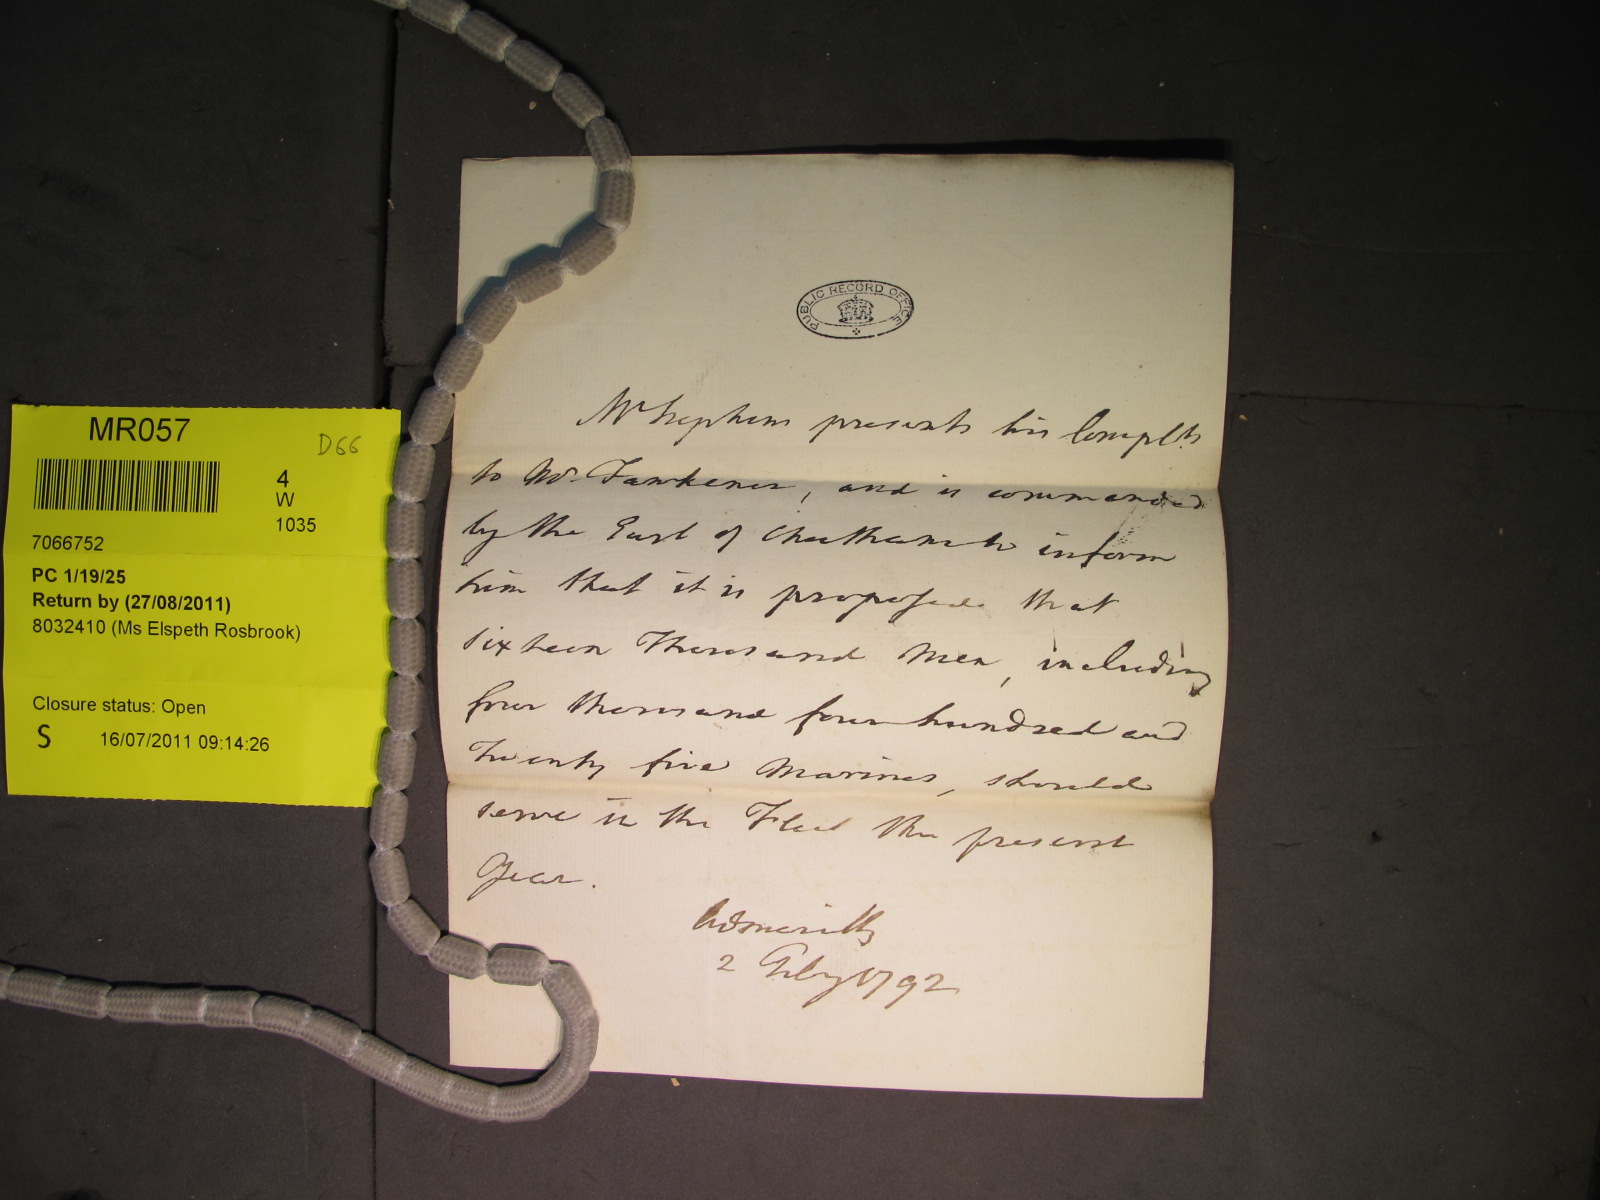 MR057
D66
4
W
1035
7066752
PC 1/19/25
Return by (27/08/2011)
8032410 (Ms Elspeth Rosbrook)
Closure status: Open
S
16/07/2011 09:14:26
PUBLIC RECORD OFFICE
Mr Stephens presents his Complts
to Mr. Fawkener, and is commanded
by the Earl of Chatham to inform
him that it is proposed that
sixteen Thousand Men, including
four thousand four hundred and
Twenty five Marines, should
serve in the Fleet the present
Year.
Admiralty
2 Feby 1792